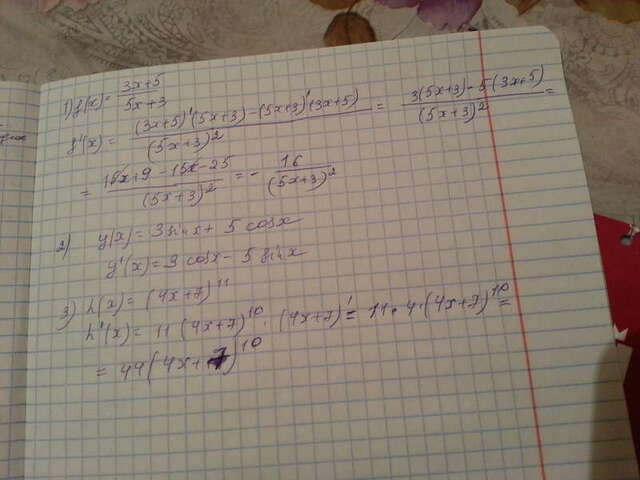 1) f(x) = (3x+5)/(5x+3)
f'(x) = ((3x+5)'(5x+3) - (5x+3)'(3x+5))/(5x+3)² = (3(5x+3) - 5(3x+5))/(5x+3)² =
= (15x+9 - 15x - 25)/(5x+3)² = - 16/(5x+3)²
2) g(x) = 3 sin x + 5 cos x
g'(x) = 3 cos x - 5 sin x
3) h(x) = (4x+7)¹¹
h'(x) = 11 (4x+7)¹⁰ · (4x+7)' = 11 · 4 · (4x+7)¹⁰ =
= 44(4x+7)¹⁰